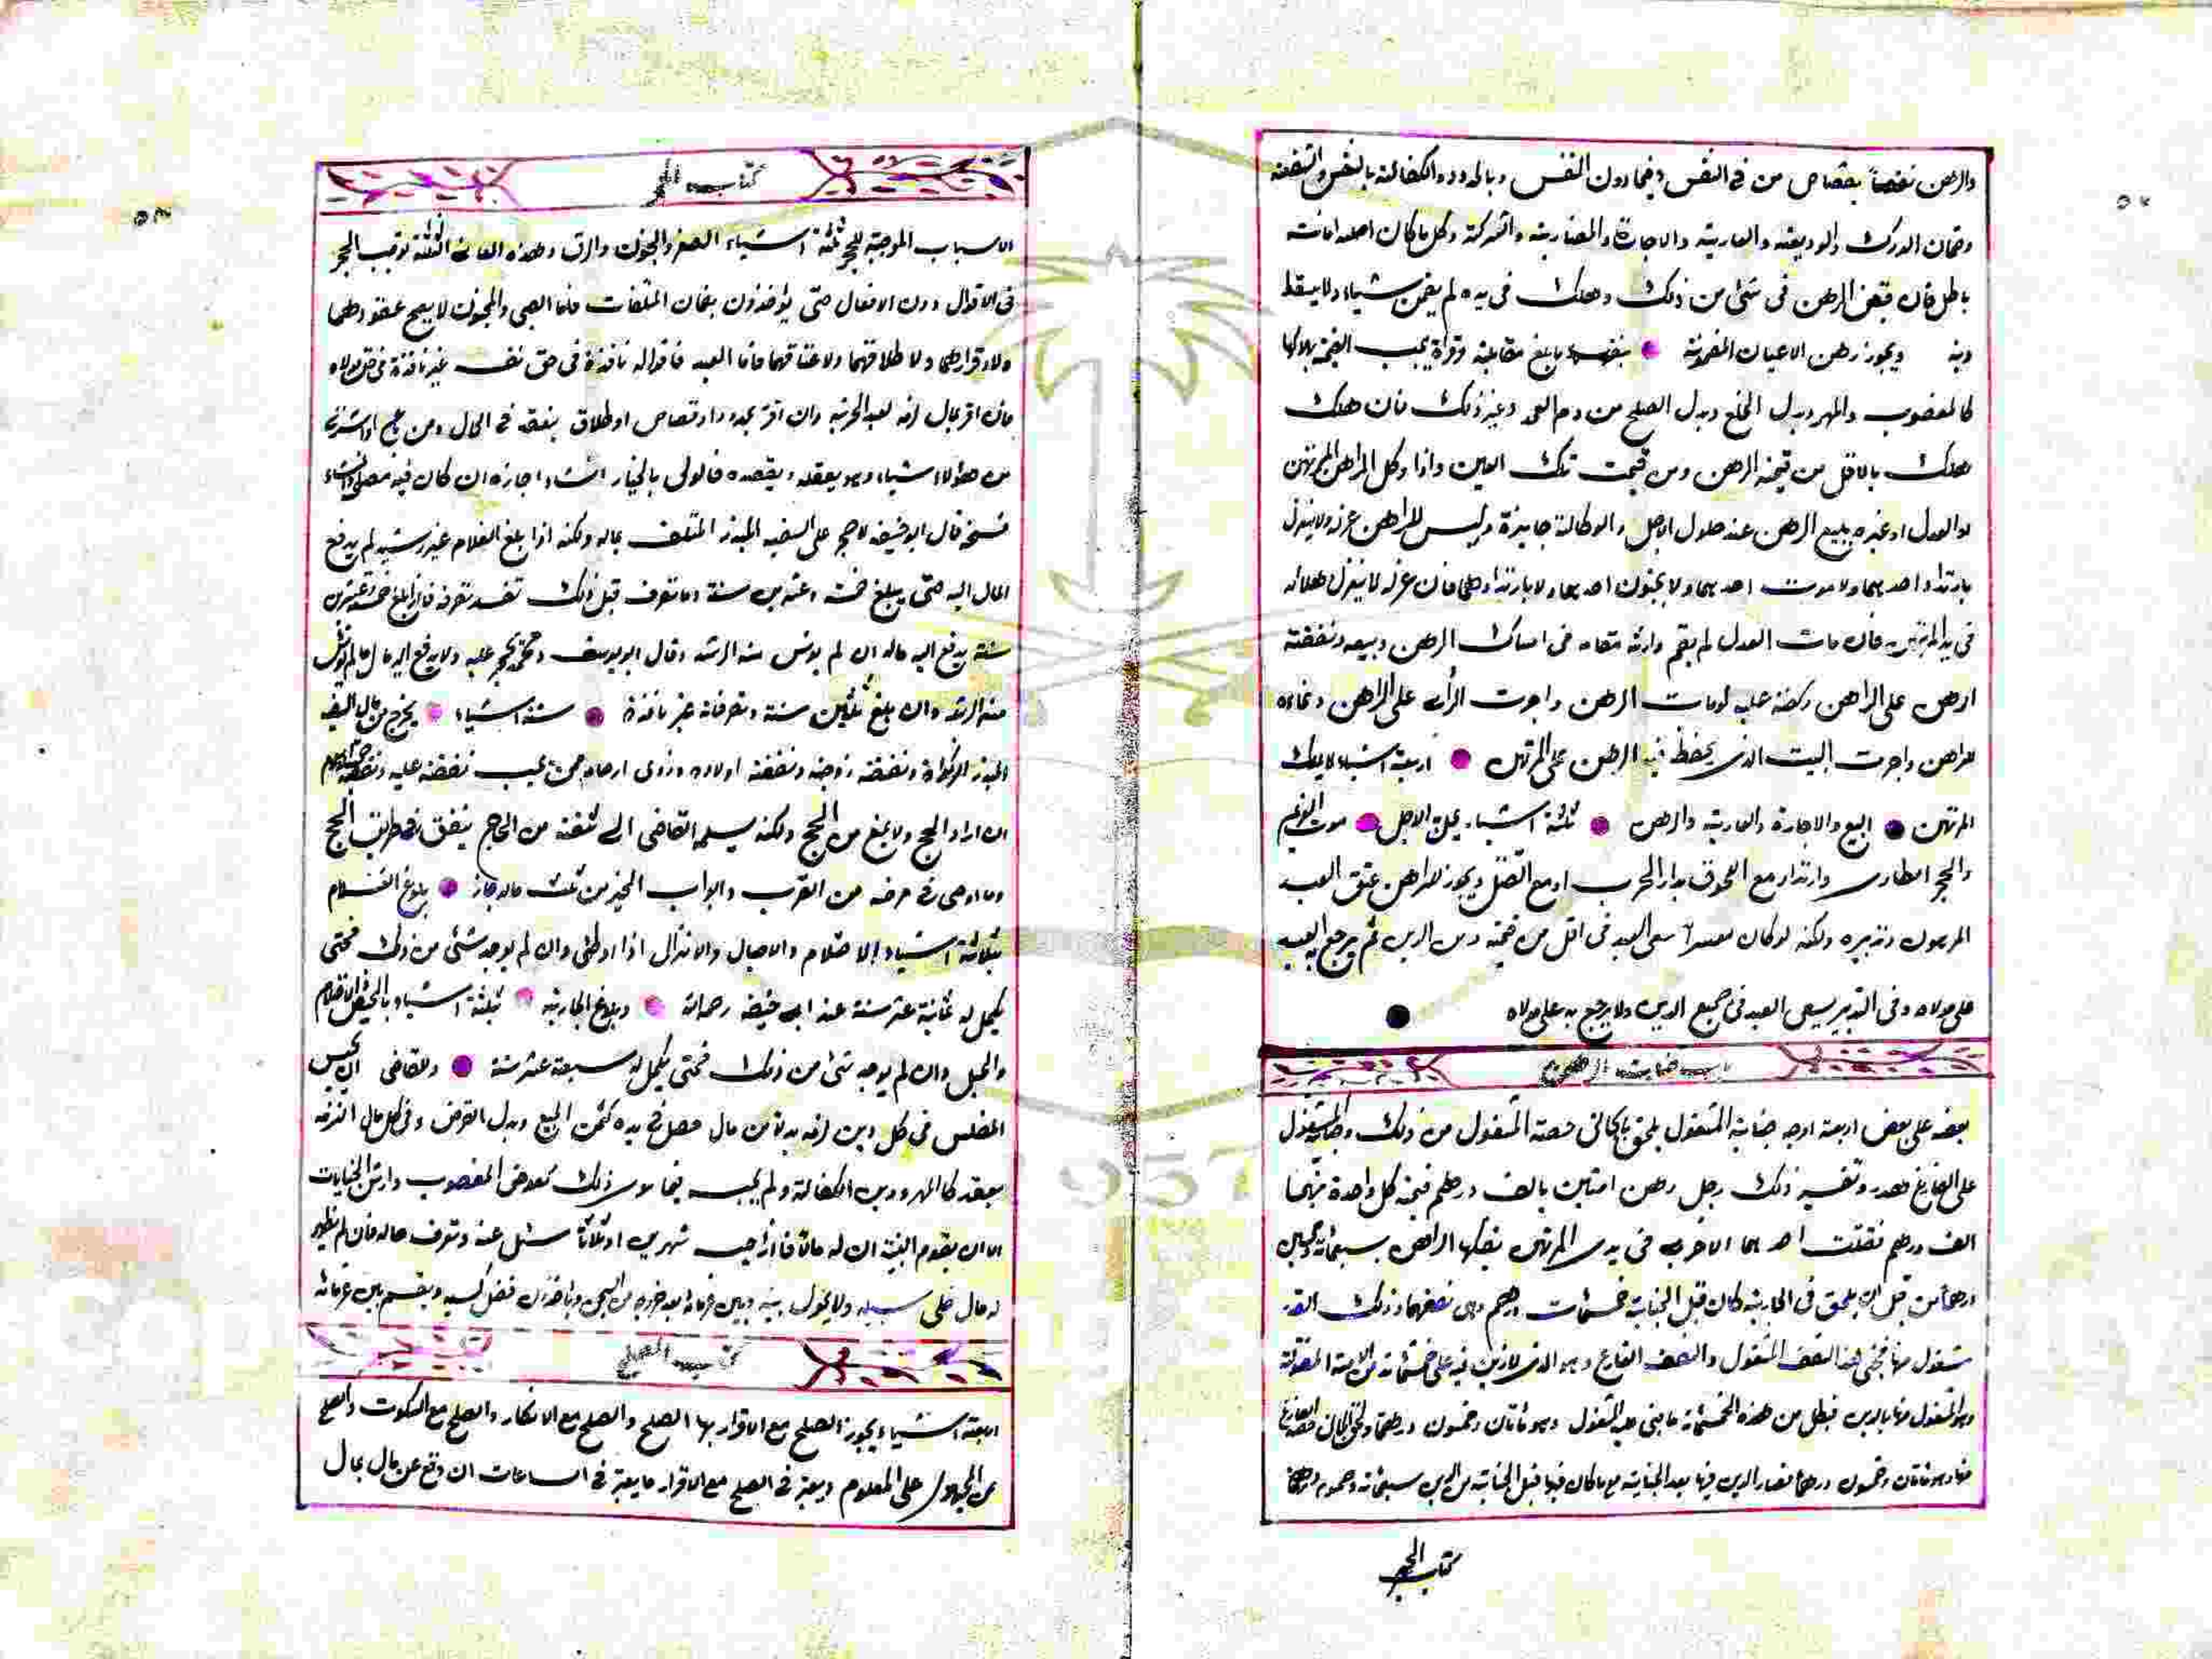 والرهن نفصاً بقصاص من في النفس وفيما دون النفس وبالحدود والكفالة بالنفس والشفعة
وضمان الدرك والوديعة والعارية والاجارة والمضاربة والشركة وكل ما كان اصله امانت
باطل فان قبض الرهن في شئ من ذلك وهلك في يده لم يضمن شياء ولا يسقط
دينه ويجوز رهن الاعيان المضمونة بنفسها بالغ مقابلته بهلاكها
كالمغصوب والمهر وبدل الخلع وبدل الصلح من دم العمد وغير ذلك فان هلك
هلك بالاقل من قيمة الرهن ومن قيمت تلك العين واذا وكل الراهن المرتهن
او العدل او غيره ببيع الرهن عند حلول الاجل والوكالة جايزة وليس للراهن عزله ولا ينعزل
بارتداد احدهما ولا موت احدهما ولا بجنون احدهما ولا بارتدادهما فان عزله لا ينعزل
في يد المرتهن فان مات العدل لم يقم وارثه مقامه في امساك الرهن وبيعه ونفقته
الرهن على الراهن وكفنه عليه لو مات الرهن واجرت الراعي على الراهن ونماءه
للراهن واجرت البيت الذي يحفظ فيه الرهن على المرتهن اربعة اشياء لا يملك
المرتهن البيع والاجارة والعارية والرهن ثلثة اشياء يحل الاجل موت الغريم
والحجر الطاري وارتداد مع اللحوق بدار الحرب او مع القتل ويجوز للراهن عتق العبد
المرهون وتدبيره ولكنه لو كان معسرا سعى العبد في اقل من قيمته ومن الدين ثم يرجع العبد
على مولاه وفي التدبير يسعى العبد في جميع الدين ولا يرجع به على مولاه
باب جنايت الرهن
بعضه على بعض اربعة اوجه جناية المشغول يلحق بالجاني حصته المشغول من ذلك وجناية المشغول
على الفارغ هدر وتفسير ذلك رجل رهن امتين بالف درهم قيمة كل واحدة منهما
الف درهم فقتلت احدهما الاخرى في يدي المرتهن يفكها الراهن بسبعمائة وخمسين
درهما من قبل ان يلحق في الجارية كان قبل الجناية خمسمائة درهم وهي نصفها وذلك القدر
مشغول منها فجنى هذا النصف المشغول والنصف الفارغ وهو الذي لا دين فيه على خمسمائة من الامة المقتولة
وهو المشغول منها بالدين فبطل من هذه الخمسمائة ما جنى عليه المشغول وهو مائتان وخمسون درهما ولحق الجاني حصة الفارغ
منها وهو مائتان وخمسون درهما فصار الدين فيها بعد الجناية مع ما كان فيها قبل الجناية من الدين سبعمائة وخمسون درهما
كتاب الحجر
كتاب الحجر
الاسباب الموجبة للحجر ثلثة اشياء الصغر والجنون والرق وهذه المعاني الثلثة توجب الحجر
في الاقوال دون الافعال حتى يؤخذون بضمان المتلفات فاما الصبي والمجنون لا يصح عقودهما
ولا اقرارهما ولا طلاقهما ولا عتاقهما فاما العبد فاقواله نافذة في حق نفسه غير نافذة في حق مولاه
فان اقر بمال لزمه بعد الحرية وان اقر بحد او قصاص او طلاق ينفذ في الحال ومن باع او اشترى
من هؤلاء شياء وهو يعقله ويقصده فالولي بالخيار ان شاء اجازه ان كان فيه مصلحة وان شاء
فسخه قال ابو حنيفه لا حجر على السفيه المبذر المتلف بماله ولكنه اذا بلغ الغلام غير رشيد لم يدفع
المال اليه حتى يبلغ خمسة وعشرين سنة وما تصرف قبل ذلك نفذ تصرفه فاذا بلغ خمسة وعشرين
سنة يدفع اليه ماله ان لم يونس منه الرشد وقال ابو يوسف ومحمد يحجر عليه ولا يدفع اليه مال ما لم يونس
منه الرشد وان بلغ ثمانين سنة وتصرفاته غير نافذة ستة اشياء يخرج من مال السفيه
المبذر الزكواة ونفقته زوجته ونفقته اولاده وذوى ارحامه ممن يجب نفقته عليه ونفقة حجة الاسلام
ان اراد الحج ولا يمنع من الحج ولكنه يسلمها القاضي الى ثقته من الحاج ينفق في طريق الحج
وما اوصى في مرضه من القرب والابواب الخير من ثلث ماله جاز بلوغ الغلام
بثلاثة اشياء الاحتلام والاحبال والانزال اذا اوطئ وان لم يوجد شئ من ذلك فحتى
يكمل له ثمانية عشر سنة عند ابي حنيفه رحمه الله وبلوغ الجارية بثلثة اشياء بالحيض والاحتلام
والحبل وان لم يوجد شئ من ذلك فحتى يكمل له سبعة عشر سنة وللقاضي ان يحبس
المفلس في كل دين لزمه بدلا من مال حصل في يده كثمن المبيع وبدل القرض وفي كل مال التزمه
بعقد كالمهر ودين الكفالة ولم يحبسه فيما سوى ذلك كعوض المغصوب وارش الجنايات
الا ان يقوم البينة ان له مالا فاذا حبسه شهرين او ثلاثا سئل عنه وتعرف حاله فان لم يظهر
له مال خلى سبيله ولا يحول بينه وبين غرمائه بعد خروجه من السجن وياخذون فضل كسبه ويقسم بين غرمائه
كتاب الصلح
اربعة اشياء يجوز الصلح مع الاقرار بها الصلح والصلح مع الانكار والصلح مع السكوت والصلح
من المجهول على المعلوم ويعتبر في الصلح مع الاقرار ما يعتبر في البياعات ان وقع عن مال بمال